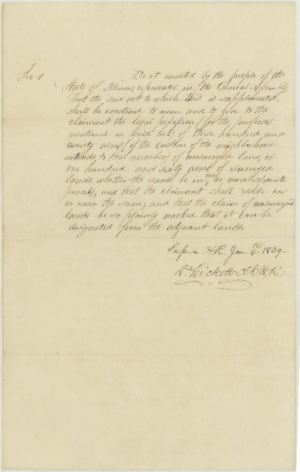 Sec 1 Be it enacted by the people of the
State of Illinois represented in the General Assembly
That the act to which this is supplemental,
shall be construed to mean and to give to the
claimant the legal possession (for the purposes
mentioned in said act) of three hundred and
twenty acres (if the custom of the neighborhood
extends to that number) of unsurveyed land, or
one hundred and sixty acres of surveyed
lands, whether the same be in one or more separate
parcels, and that the claimant shall reside on
or near the same, and that the claim of unsurveyed
lands be so plainly marked that it can be
designated from the adjacent lands.
H.R. Jan 1839.